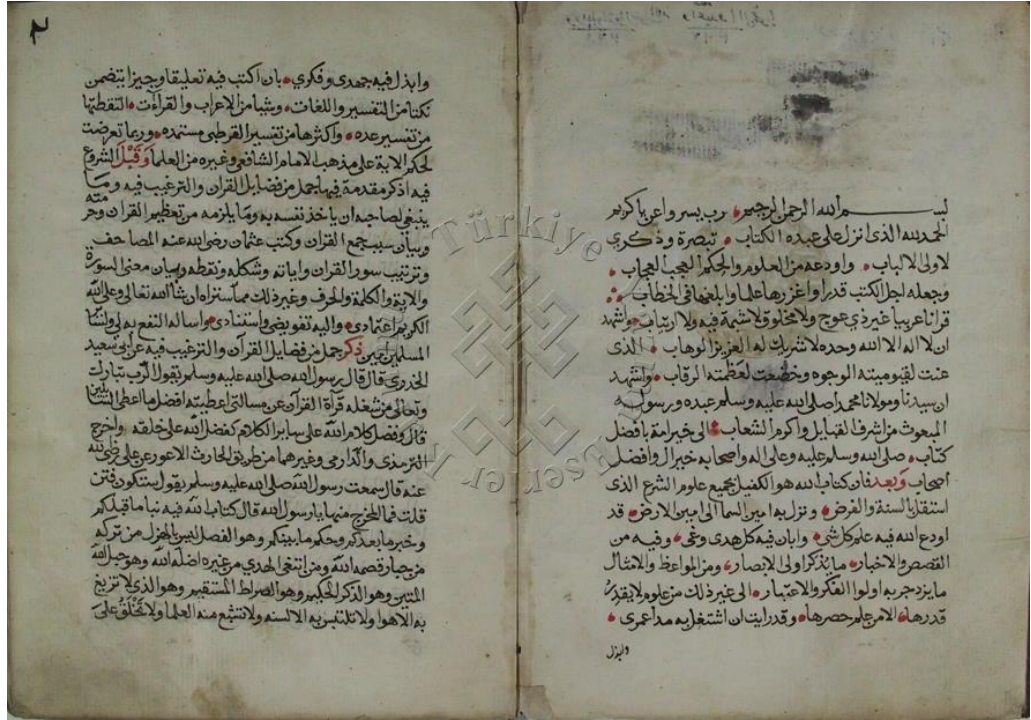 بســـــم الله الرحمن الرحيم رب يسر واعن يا كريم
الحمد لله الذي انزل على عبده الكتاب تبصرة وذكرى
لاولى الالباب واودعه من العلوم والحكم العجب العجاب
وجعله اجل الكتب قدرا واغزرها علما وابلغها في الخطاب
قرانا عربيا غير ذي عوج ولا مخلوق لا شبهة فيه ولا ارتياب واشهد
ان لا اله الا الله وحده لا شريك له العزيز الوهاب الذى
عنت لقيوميته الوجوه وخضعت لعظمته الرقاب واشهد
ان سيدنا ومولانا محمدا صلى الله عليه وسلم عبده ورسوله
المبعوث من اشرف القبايل واكرم الشعاب الى خير امة بافضل
كتاب صلى الله وسلم عليه وعلى اله واصحابه خير ال وافضل
اصحاب وبعد فان كتاب الله هو الكفيل بجميع علوم الشرع الذى
استقل بالسنة والفرض ونزل به امين السما الى امين الارض قد
اودع الله فيه علم كل شى وابان فيه كل هدى وغى وفيه من
القصص والاخبار ما يذكر اولى الابصار ومن المواعظ والامثال
ما يزدجر به اولوا الفكر والاعتبار الى غير ذلك من علوم لا يقدر
قدرها الا من علم حصرها وقد رايت ان اشتغل به مدا عمرى
وابذل
٢
وابذل فيه جهدى وفكري بان اكتب فيه تعليقا وجيزا يتضمن
نكتا من التفسير واللغات وشيا من الاعراب والقراآت التقطتها
من تفسير عده واكثرها من تفسير القرطبى مستمده وربما تعرضت
لحكم الاية على مذهب الامام الشافعى وغيره من العلما وقبل الشروع
فيه اذكر مقدمة فيها جمل من فضايل القران والترغيب فيه وما
ينبغى لصاحبه ان ياخذ نفسه به وما يلزمه من تعظيم القران وحرمته
وبيان سبب جمع القران وكتب عثمان رضى الله عنه المصاحف
وترتيب سور القران واياته وشكله ونقطه وبيان معنى السورة
والاية والكلمة والحرف وغير ذلك مما ستراه ان شا الله تعالى وعلى الله
الكريم اعتمادى واليه تفويضى واستنادى واساله النفع به لى ولسا
المسلمين امين ذكر جمل من فضايل القرآن والترغيب فيه عن ابى سعيد
الخدرى قال قال رسول الله صلى الله عليه وسلم يقول الرب تبارك
وتعالى من شغله قرآة القرآن عن مسالتى اعطيته افضل ما اعطى السائلين
قال وفضل كلام الله على ساير الكلام كفضل الله على خلقه واخرج
الترمذى والدارمى وغيرهما من طريق الحارث الاعور عن على رضى الله
عنه قال سمعت رسول الله صلى الله عليه وسلم يقول ستكون فتن
قلت فما المخرج منها يا رسول الله قال كتاب الله فيه نبا ما قبلكم
وخبر ما بعدكم وحكم ما بينكم وهو الفصل ليس بالهزل من تركه
من جبار قصمه الله ومن ابتغى الهدي من غيره اضله الله وهو حبل الله
المتين وهو الذكر الحكيم وهو الصراط المستقيم وهو الذى لا تزيغ
به الاهوا ولا تلتبس به الالسنه ولا تشبع منه العلما ولا يخلق على